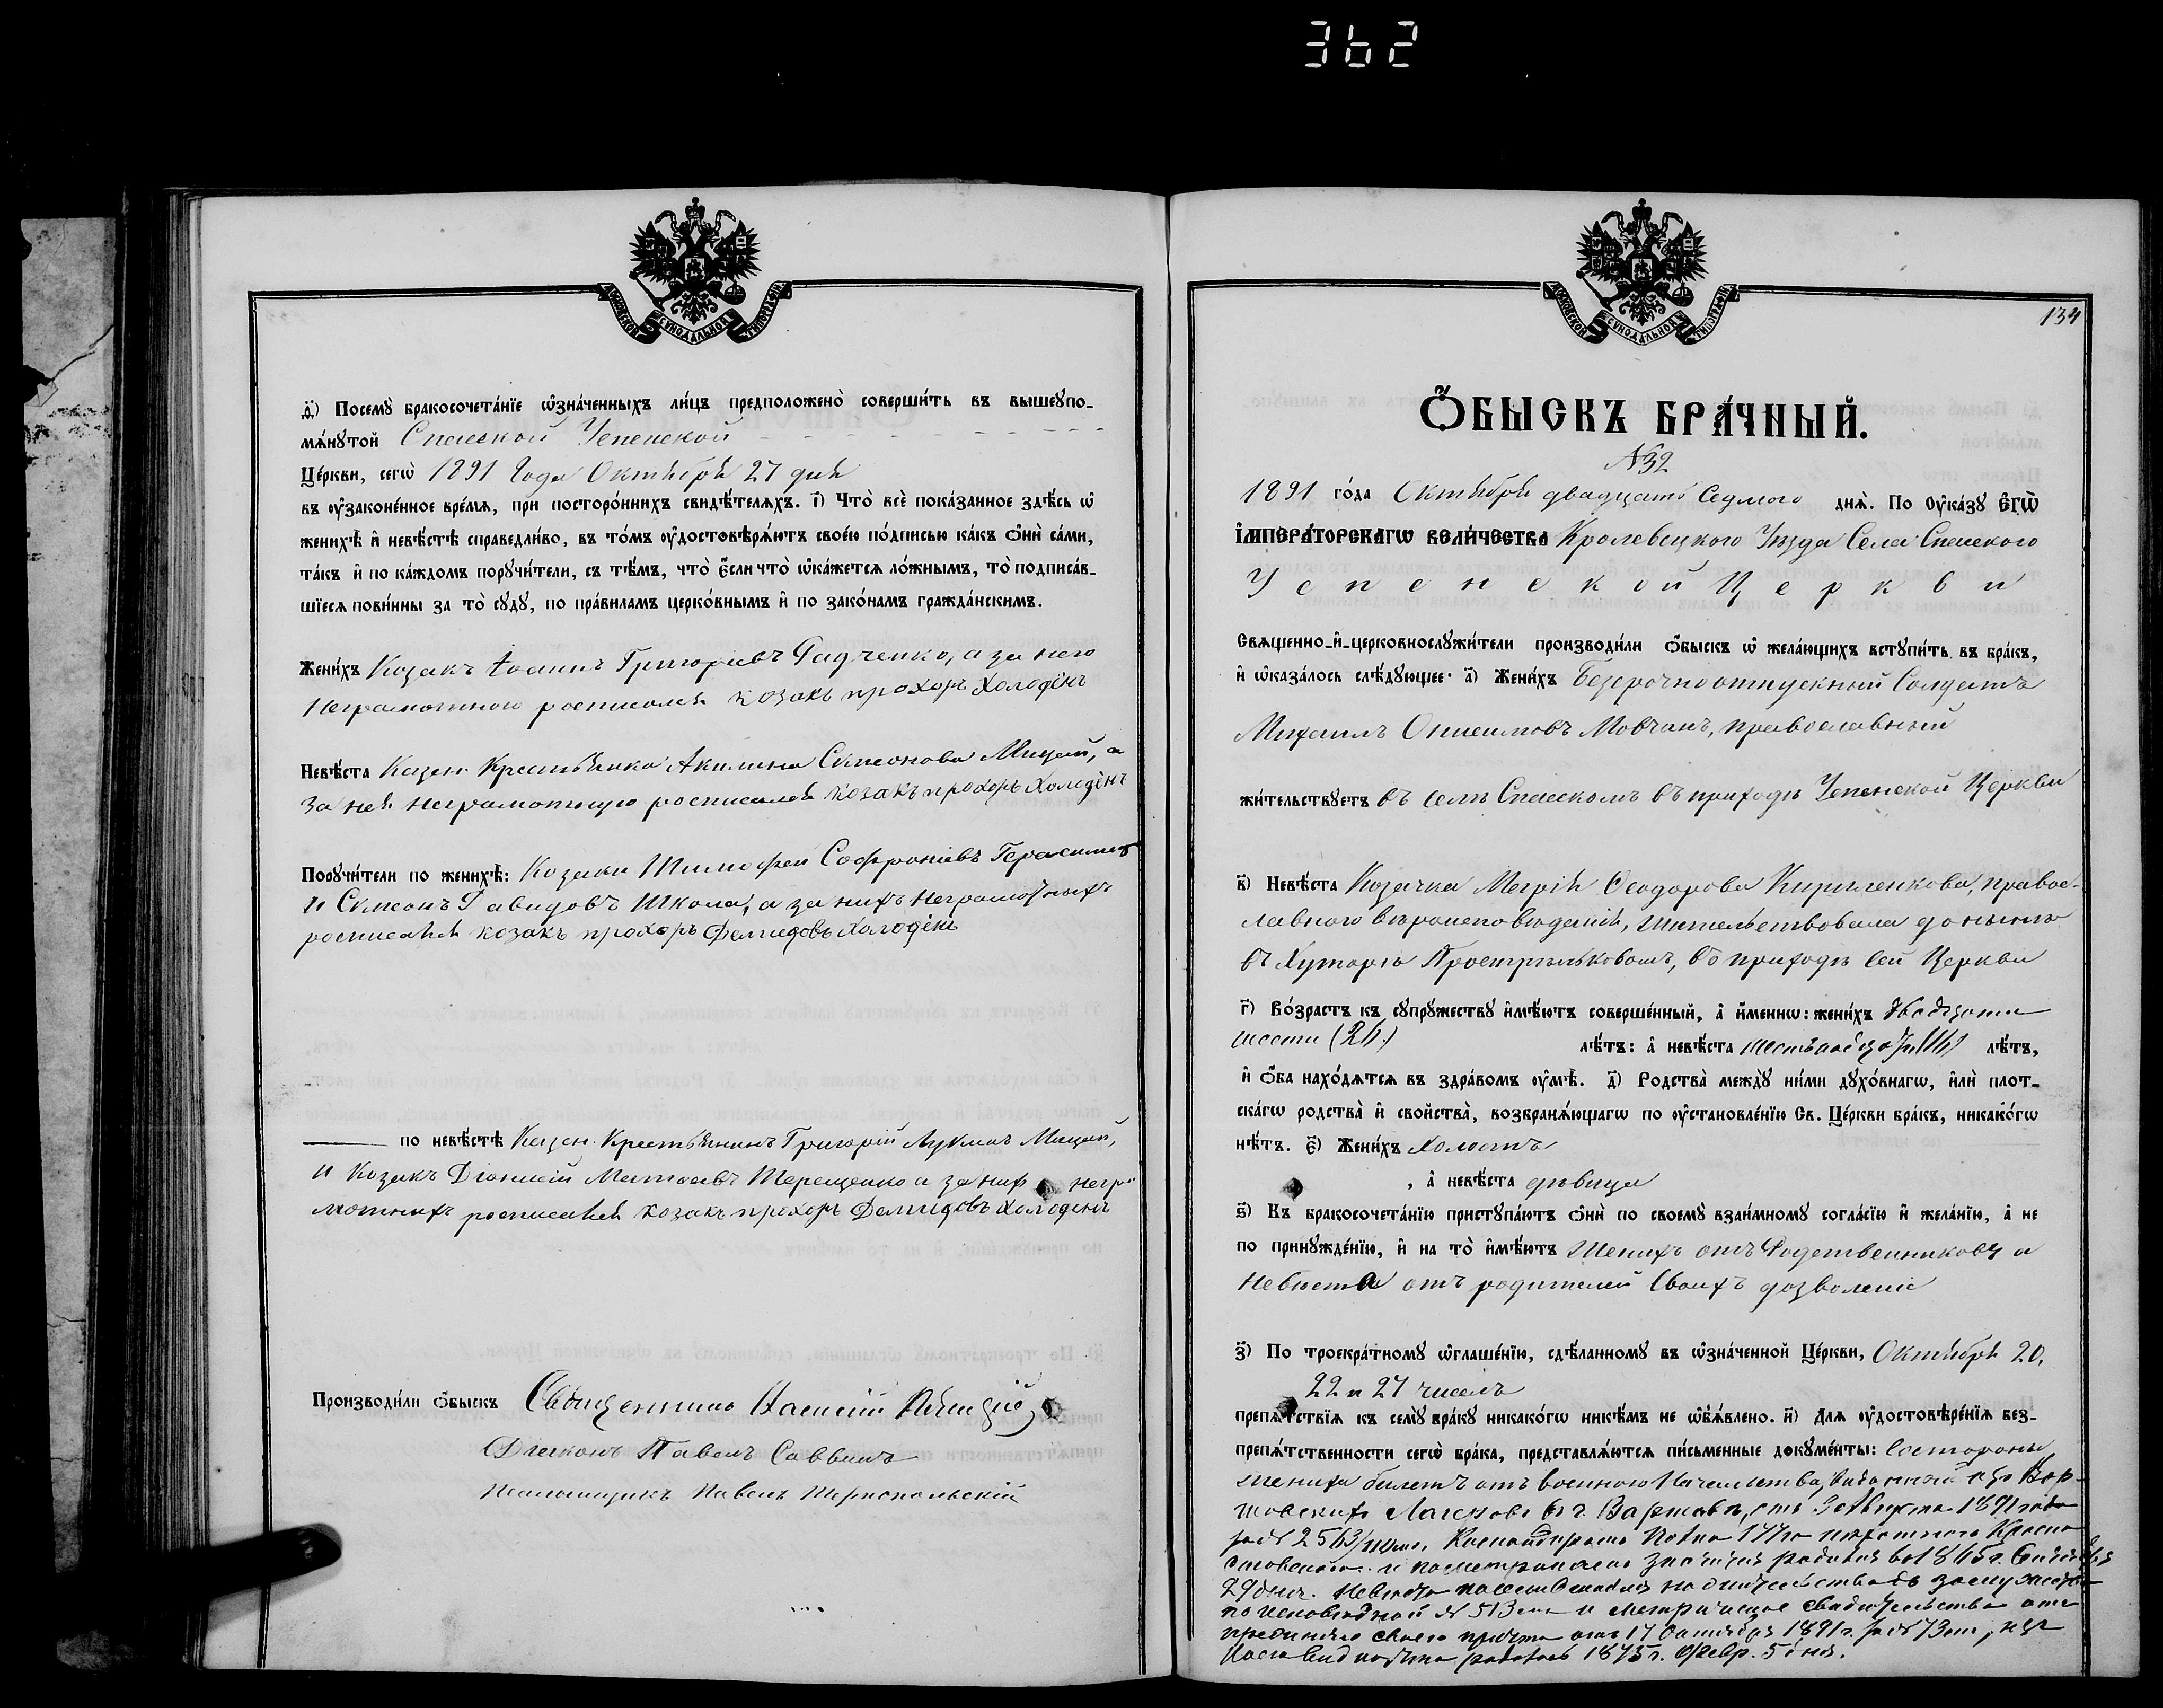 362
МОСКОВСКОЙ СѴНОДАЛЬНОЙ ТИПОГРАФІИ
д҃) Посемꙋ̀ бракосочета́нїе ѡ҆зна́ченныхъ ли́цъ предположено̀ соверши́ть въ вышеꙋпо-
мѧ́нꙋтой Спасской Успенской
Це́ркви, сегѡ̀ 1891 Года Октября 27 дня
въ ᲂу҆зако́ненное вре́мѧ, при посторо́ннихъ свидѣ́телѧхъ. і҃) Что̀ всѐ пока́занное здѣ́сь ѡ҆
женихѣ̀ и҆ невѣ́стѣ справедли́во, въ то́мъ ᲂу҆достовѣрѧ́ютъ свое́ю по́дписью ка́къ ѻ҆нѝ са́ми,
та́къ и҆ по ка́ждомъ порꙋчи́тели, съ тѣ́мъ, что̀ є҆́сли что̀ ѡ҆ка́жетсѧ ло́жнымъ, то̀ подписа́в-
шїесѧ пови́нны за то̀ сꙋдꙋ̀, по пра́виламъ церко́внымъ и҆ по зако́намъ гражда́нскимъ.
Жени́хъ Козакъ Іоаннъ Григоріевъ Радченко, а за него
неграмотного росписался козакъ прохоръ Холодѣнъ
Невѣ́ста Казен. Крестьянка Акилина Симеонова Мицай, а
за нея неграмотную росписался козакъ прохоръ Холодѣнъ
Порꙋчи́тели по женихѣ̀: Козаки Тимофей Софроніевъ Герасименъ
и Симеонъ Давидовъ Школа, а за нихъ неграмотныхъ
росписался козакъ прохоръ Демидовъ Холодѣнъ
по невѣ́стѣ Казен. Крестьянинъ Григорій Лукинъ Мицай,
и Козакъ Діонисій Матѳеевъ Терещенко а за них негра
мотныхъ росписался козакъ прохоръ Демидовъ Холоденъ
Производи́ли ѻ҆́быскъ Священникъ
Діаконъ Павелъ Саввинъ
Псаломщикъ Павелъ Тернопольскій
МОСКОВСКОЙ СѴНОДАЛЬНОЙ ТИПОГРАФІИ
134
Ѻ҆́БЫСКЪ БРА́ЧНЫЙ.
№32
1891 го́да Октября двадцать Седмого днѧ̀. По Оу҆ка́зꙋ Є҆ГѠ̀
И҆МПЕРА́ТОРСКАГѠ ВЕЛИ́ЧЕСТВА Кролевецкого Уѣзда Села Спасского
Успенской Церкви
Свѧще́нно-и҆-церковнослꙋжи́тели производи́ли ѻ҆́быскъ ѡ҆ жела́ющихъ встꙋпи́ть въ бра́къ,
и҆ ѡ҆каза́лось слѣ́дꙋющее: а҃) Жени́хъ Безсрочноотпускный Солдатъ
Михаилъ Онисимовъ Мовчанъ, православный
жи́тельствꙋетъ въ селѣ Спасскомъ въ приходѣ Успенской Церкви
в҃) Невѣ́ста Козачка Марія Ѳеодорова Кириленкова, правос-
лавного вѣроисповѣданія, жительствовала донынѣ
въ Хуторѣ Прострѣльковомъ, въ приходѣ сей Церкви
г҃) Во́зрастъ къ сꙋпрꙋ́жествꙋ и҆мѣ́ютъ соверше́нный, а҆ и҆́меннѡ: жени́хъ двадцати
шести (26) лѣ́тъ: а҆ невѣ́ста шестьнадцать (16) лѣ́тъ,
и҆ ѻ҆́ба нахо́дѧтсѧ въ здра́вомъ ᲂу҆мѣ̀. д҃) Родства̀ междꙋ̀ ни́ми дꙋхо́внагѡ, и҆лѝ плот-
ска́гѡ родства̀ и҆ свойства̀, возбранѧ́ющагѡ по ᲂу҆становле́нїю Св. Це́ркви бра́къ, никако́гѡ
нѣ́тъ. є҃) Жени́хъ холостъ
, а҆ невѣ́ста дѣвица
ѕ҃) Къ бракосочета́нїю пристꙋпа́ютъ ѻ҆нѝ по своемꙋ̀ взаи́мномꙋ согла́сїю и҆ жела́нїю, а҆ не
по принꙋжде́нїю, и҆ на то̀ и҆мѣ́ютъ Женихъ отъ Родственниковъ а
Невѣста отъ родителей Своихъ дозволеніе
з҃) По троекра́тномꙋ ѡ҆глаше́нїю, сдѣ́ланномꙋ въ ѡ҆зна́ченной Це́ркви, Октября 20,
22 и 27 числъ
препѧ́тствїѧ къ семꙋ̀ бра́кꙋ никако́гѡ никѣ́мъ не ѡ҆б̾ѧ́влено. и҃) Длѧ ᲂу҆достовѣре́нїѧ без-
препѧ́тственности сегѡ̀ бра́ка, представлѧ́ютсѧ пи́сьменные докꙋме́нты: Состороны
жениха билетъ отъ военного Начальства, выданный изъ Вар-
шавскихъ въ г. Варшавѣ, отъ Августа 1891 года
за № Командиромъ Полка 177го пѣхотного Красно
ставского
29 дня. Невѣста
по исповѣдной № 513 и метрическое свидѣтельство отъ
своего причта отъ 17 Октября 1891 г. за № 73, изъ
коего видно что родилась 1875 г. Февр. 5 дня.